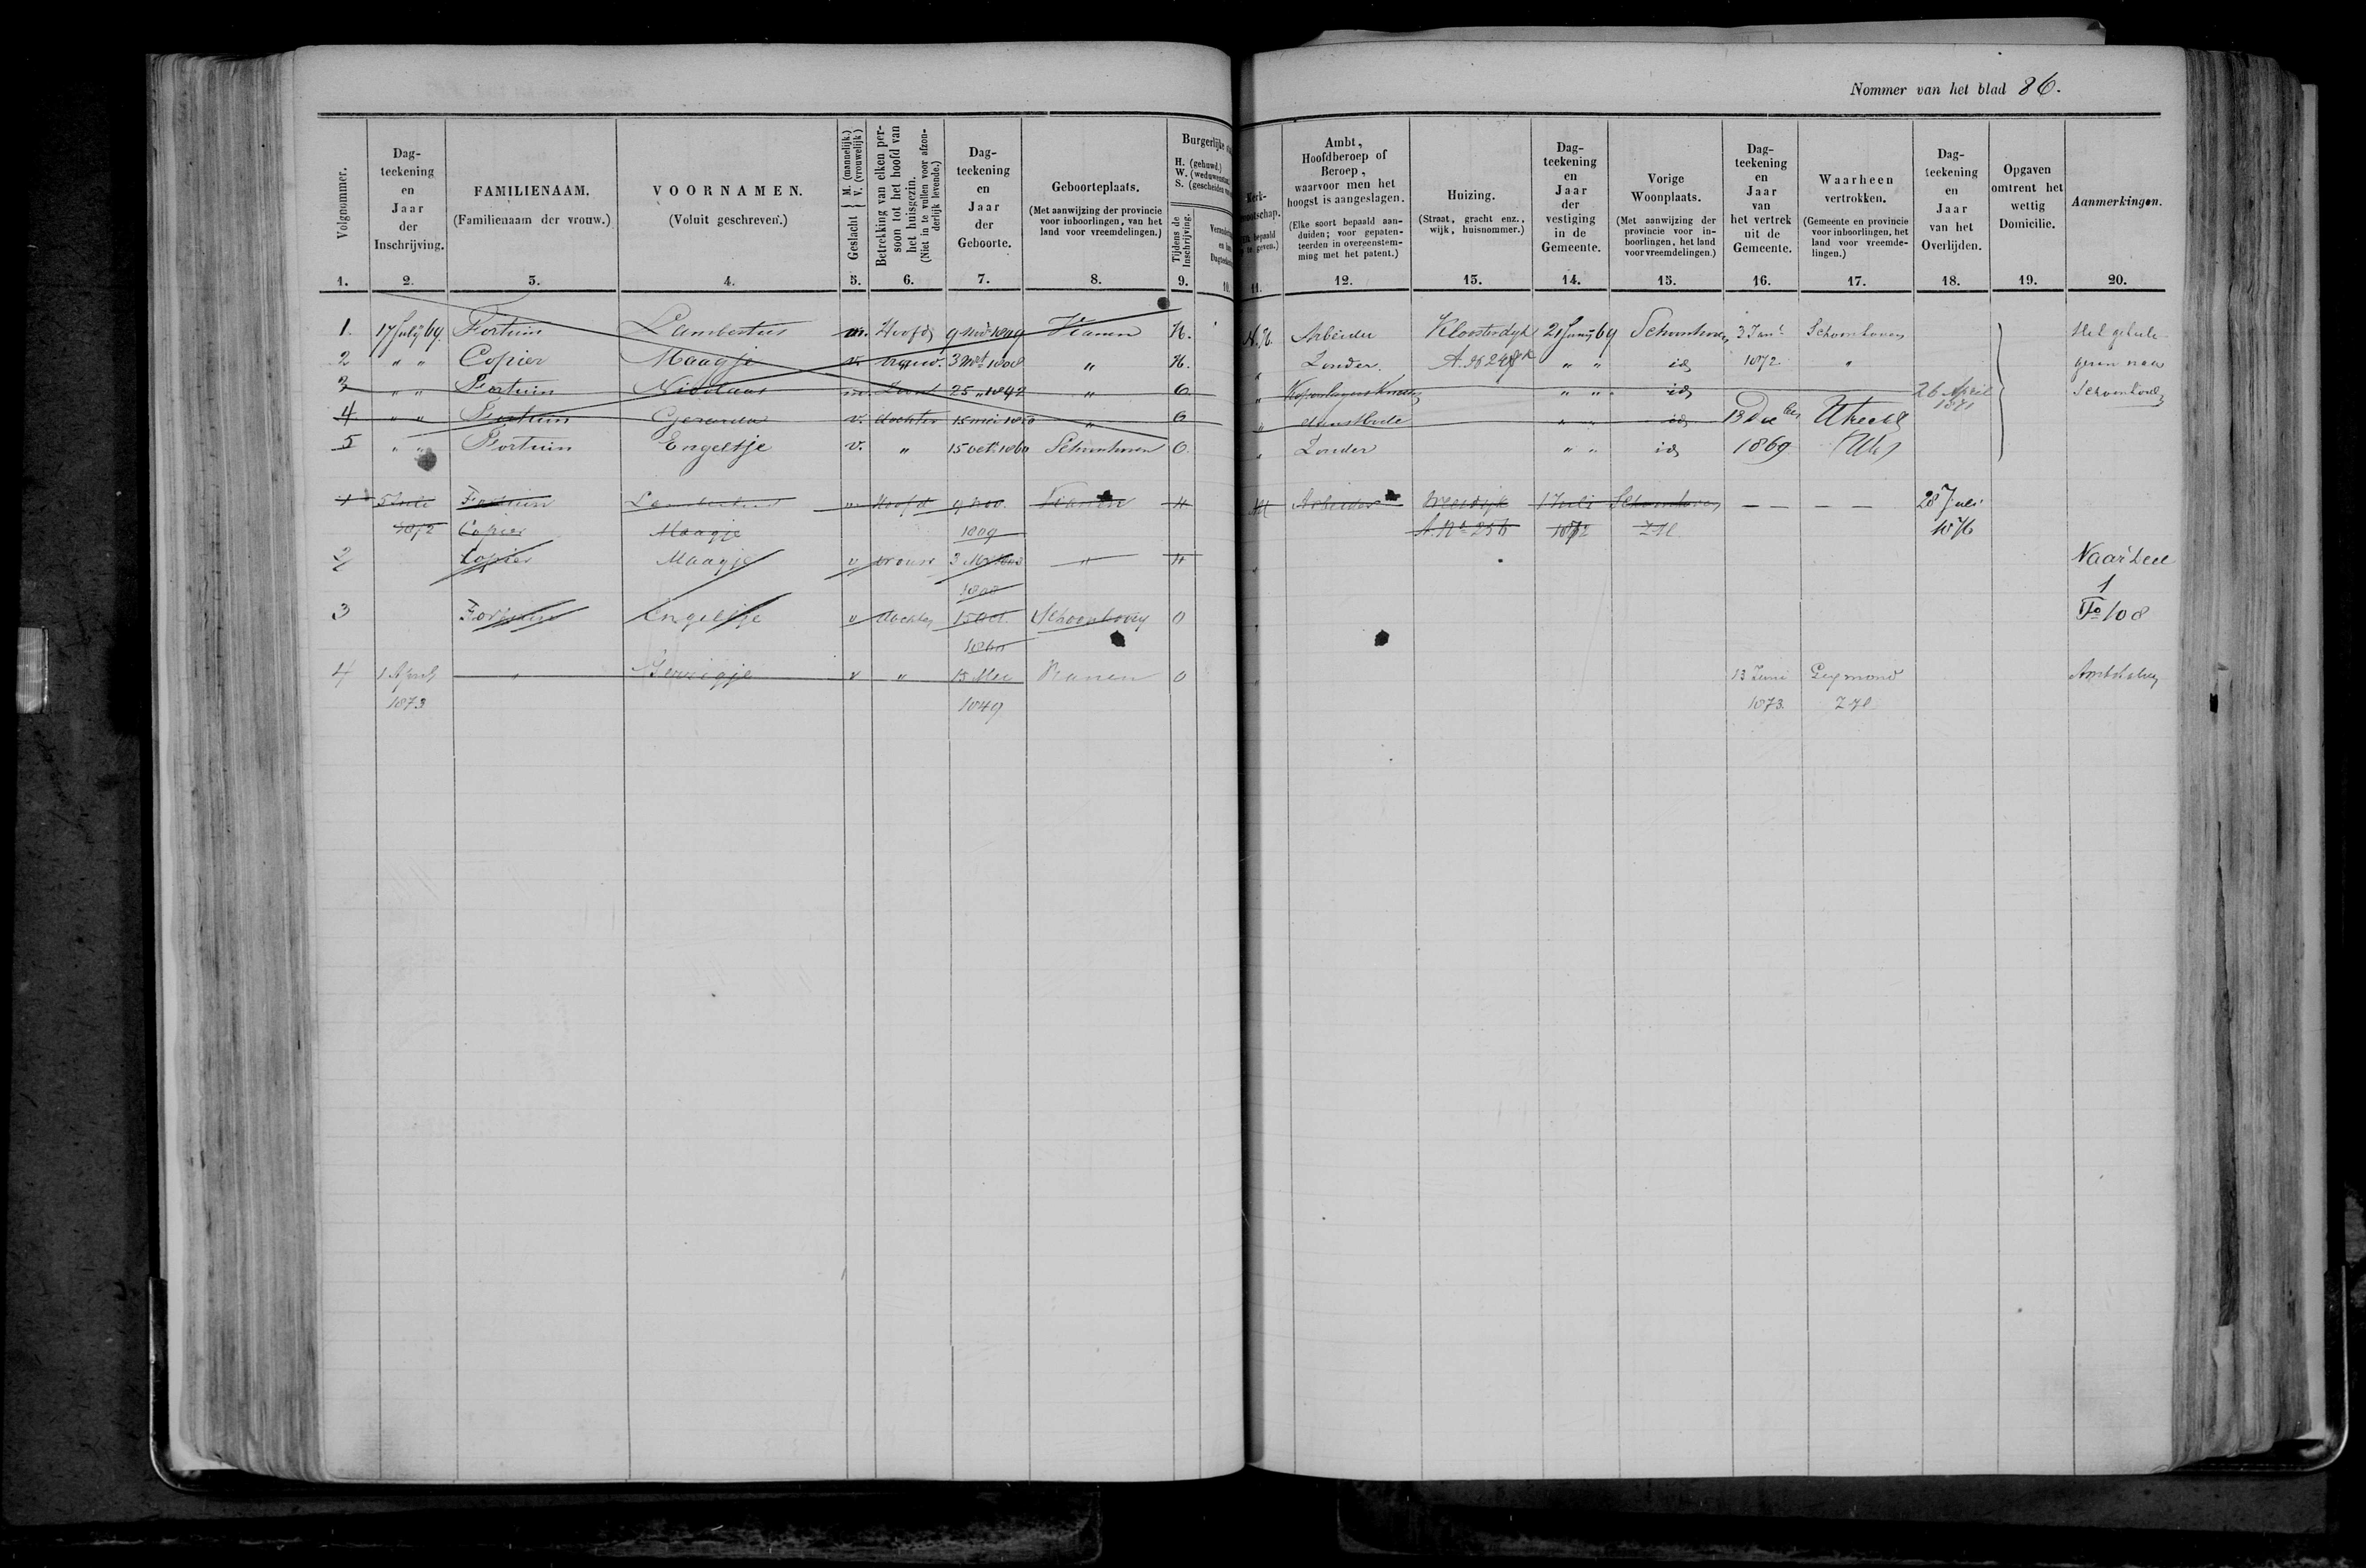 Nommer van het blad 86.
Volgnommer. 1.
Dag-teekening en Jaar der Inschrijving. 2.
FAMILIENAAM. (Familienaam der vrouw.) 3.
VOORNAMEN. (Voluit geschreven.) 4.
Geslacht { M. (mannelijk.) V. (vrouwelijk) 5.
Betrekking van elken per-soon tot het hoofd van het huisgezin. (Niet in te vullen voor afzon-derlijk levende.) 6.
Dag-teekening en Jaar der Geboorte. 7.
Geboorteplaats. (Met aanwijzing der provincie voor inboorlingen, van het land voor vreemdelingen.) 8.
Burgerlijke
H. (gehuwd.) W. (weduwe S. (gescheiden
Tijdens de Inschrijving. 9.
10.
11.
Ambt, Hoofdberoep of Beroep, waarvoor men het hoogst is aangeslagen. (Elke soort bepaald aan-duiden; voor gepaten-teerden in overeenstem-ming met het patent.) 12.
Huizing. (Straat, gracht enz., wijk, huisnommer.) 13.
Dag-teekening en Jaar der vestiging in de Gemeente. 14.
Vorige Woonplaats. (Met aanwijzing der provincie voor in-boorlingen, het land voor vreemdelingen.) 15.
Dag-teekening en Jaar van het vertrek uit de Gemeente. 16.
Waarheen vertrokken. (Gemeente en provincie voor inboorlingen, het land voor vreemde-lingen.) 17.
Dag-teekening en Jaar van het Overlijden. 18.
Opgaven omtrent het wettig Domicilie. 19.
Aanmerkingen. 20.
1. 17 July 69. Fortuin Lambertus m. Hoofd 9 Nov 1809 Vianen H. N.H. Arbeider Kloosterdyk 21 Juny 69 Schoonhoven 3 Jan Schoonhoven Het gehele
2 " " Copier Maagje v. vrouw. 3 Mrt 1808 " H. " Zonder. A. No 24 " " id 1872 " gezin naar
3 " " Fortuin Nicolaas m. Zoon 25 " 1842 " O " Koperslagersknecht " " id 26 April 1871 Schoonhoven
4 " " Fortuin v. dochter 15 mei " O " dienstbode " " id 13 Dec Utrecht
5 " " Fortuin Engeltje v. " 15 oct 1860 Schoonhoven O. " Zonder " " id 1869 (Ut)
1 5 Juli Fortuin Lambertus m Hoofd 9 Nov. Vianen H NH Arbeider 1 Juli Schoonhoven — — — — 28 Juli
1872 Copier Maagje 1809 A. No 25 1872 ZH 1876
2 Copier Maagje v vrouw 3 " H " Naar Deel
1808 1
3 Fortuin Engeltje v dochter 15 Oct. Schoonhoven O " Fo 108
1860
4 1 April " v " 15 Mei Vianen O " 13 Juni
1873 1849 1873. ZH